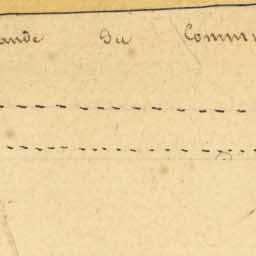 ande du Comm